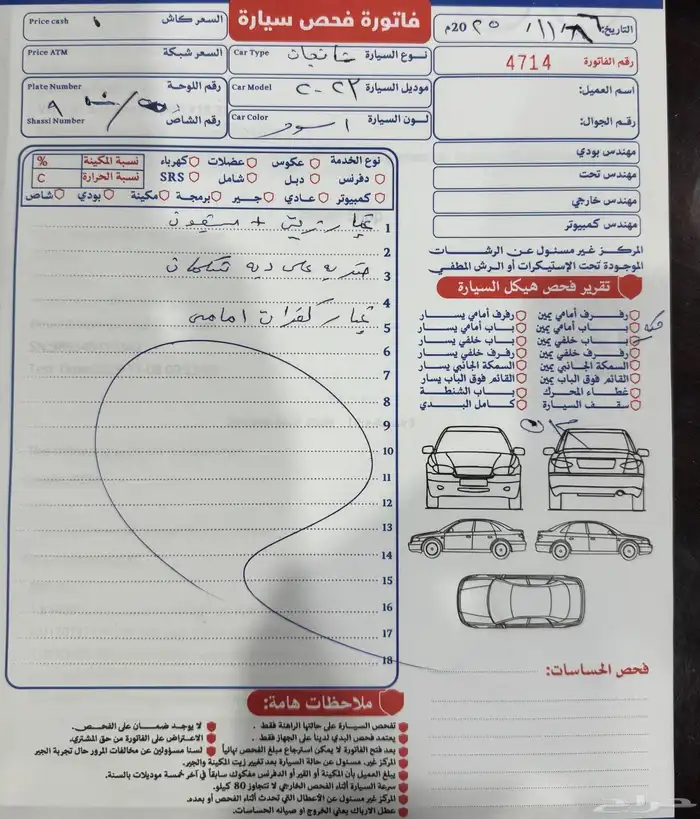 فاتورة فحص سيارة
السعر كاش Price cash
التاريخ: / 11 / 2025م
رقم الفاتورة 4714
نوع السيارة Car Type
السعر شبكة Price ATM
اسم العميل:
موديل السيارة ٢٠٢٣ Car Model
رقم اللوحة Plate Number
رقم الشاص Shassi Number
رقم الجوال:
لون السيارة اسود Car Color
مهندس بودي
مهندس تحت
مهندس خارجي
مهندس كمبيوتر
نوع الخدمة عكوس عضلات كهرباء نسبة المكينة %
دفرنس دبل شامل SRS نسبة الحرارة C
كمبيوتر عادي جير برمجة مكينة بودي شاص
1 غيار زيت +
2
3
4
5 غيار كفرات امامي
6
7
8
9
10
11
12
13
14
15
16
17
18
المركز غير مسئول عن الرشات
الموجودة تحت الإستيكرات أو الرش المطفي
تقرير فحص هيكل السيارة
رفرف أمامي يمين رفرف أمامي يسار
باب أمامي يمين باب أمامي يسار
باب خلفي يمين باب خلفي يسار
رفرف خلفي يمين رفرف خلفي يسار
السمكة الجانبي يمين السمكة الجانبي يسار
القائم فوق الباب يمين القائم فوق الباب يسار
غطاء المحرك باب الشنطة
سقف السيارة كامل البدي
فحص الحساسات:
ملاحظات هامة:
تفحص السيارة على حالتها الراهنة فقط .
يعتمد فحص البدي لدينا على الجهاز فقط .
بعد فتح الفاتورة لا يمكن استرجاع مبلغ الفحص نهائياً
المركز غير مسئول عن حالة السيارة بعد تغيير زيت المكينة والجير.
يبلغ العميل بأن المكينة أو القير أو الدفرنس مفكوك سابقاً في آخر خمسة موديلات بالسنة.
سرعة السيارة أثناء الفحص الخارجي لا تتجاوز 80 كيلو.
المركز غير مسئول عن الأعطال التي تحدث أثناء الفحص أو بعده.
عطل الارباك يعني الخروج أو صيانه الحساسات.
لا يوجد ضمان على الفحص.
الاعتراض على الفاتورة من حق المشتري.
لسنا مسؤولين عن مخالفات المرور حال تجربة الجير
حراج